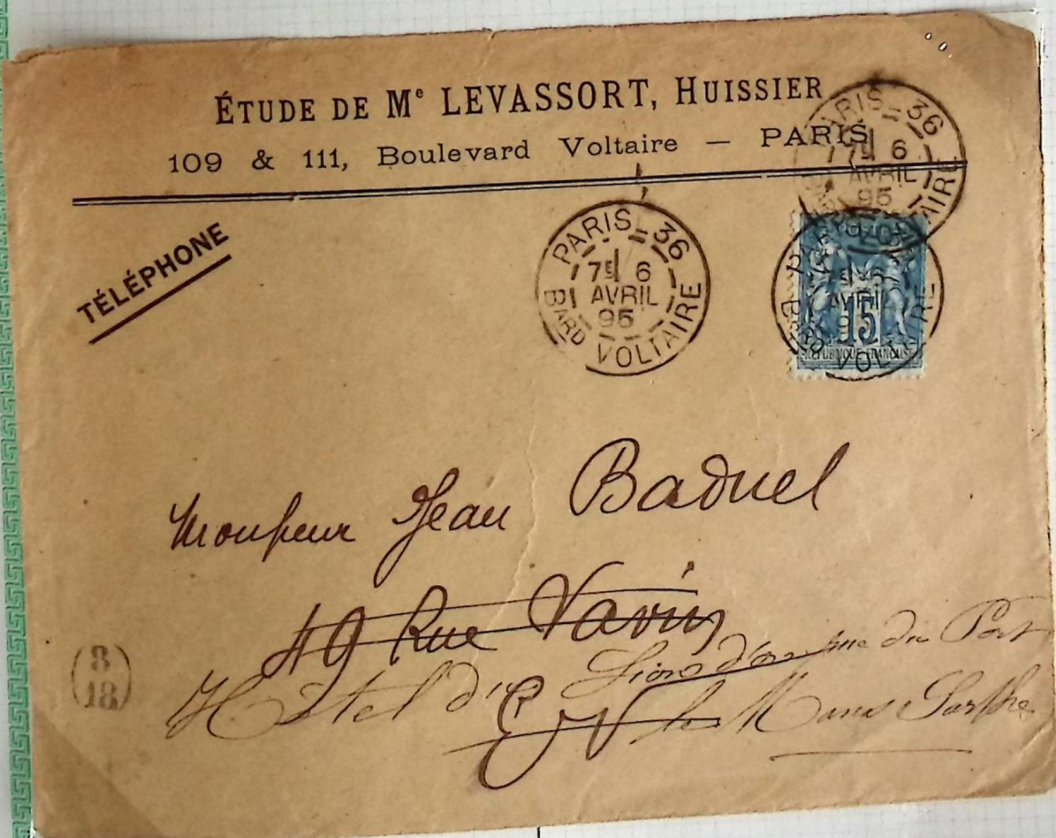 ÉTUDE DE Mᵉ LEVASSORT, HUISSIER
109 & 111, Boulevard Voltaire — PARIS
TÉLÉPHONE
PARIS - 36
7ᴱ 6
AVRIL
95
Bᴬᴿᴰ VOLTAIRE
PARIS - 36
7ᴱ 6
AVRIL
95
VOLTAIRE
15
REPUBLIQUE FRANCAISE
AVRIL
Bᴬᴿᴰ VOLTAIRE
Monsieur Jean Baduel
49 Rue Vavin
Hôtel du Lion d'or rue du Port
le Mans Sarthe
(8
18)